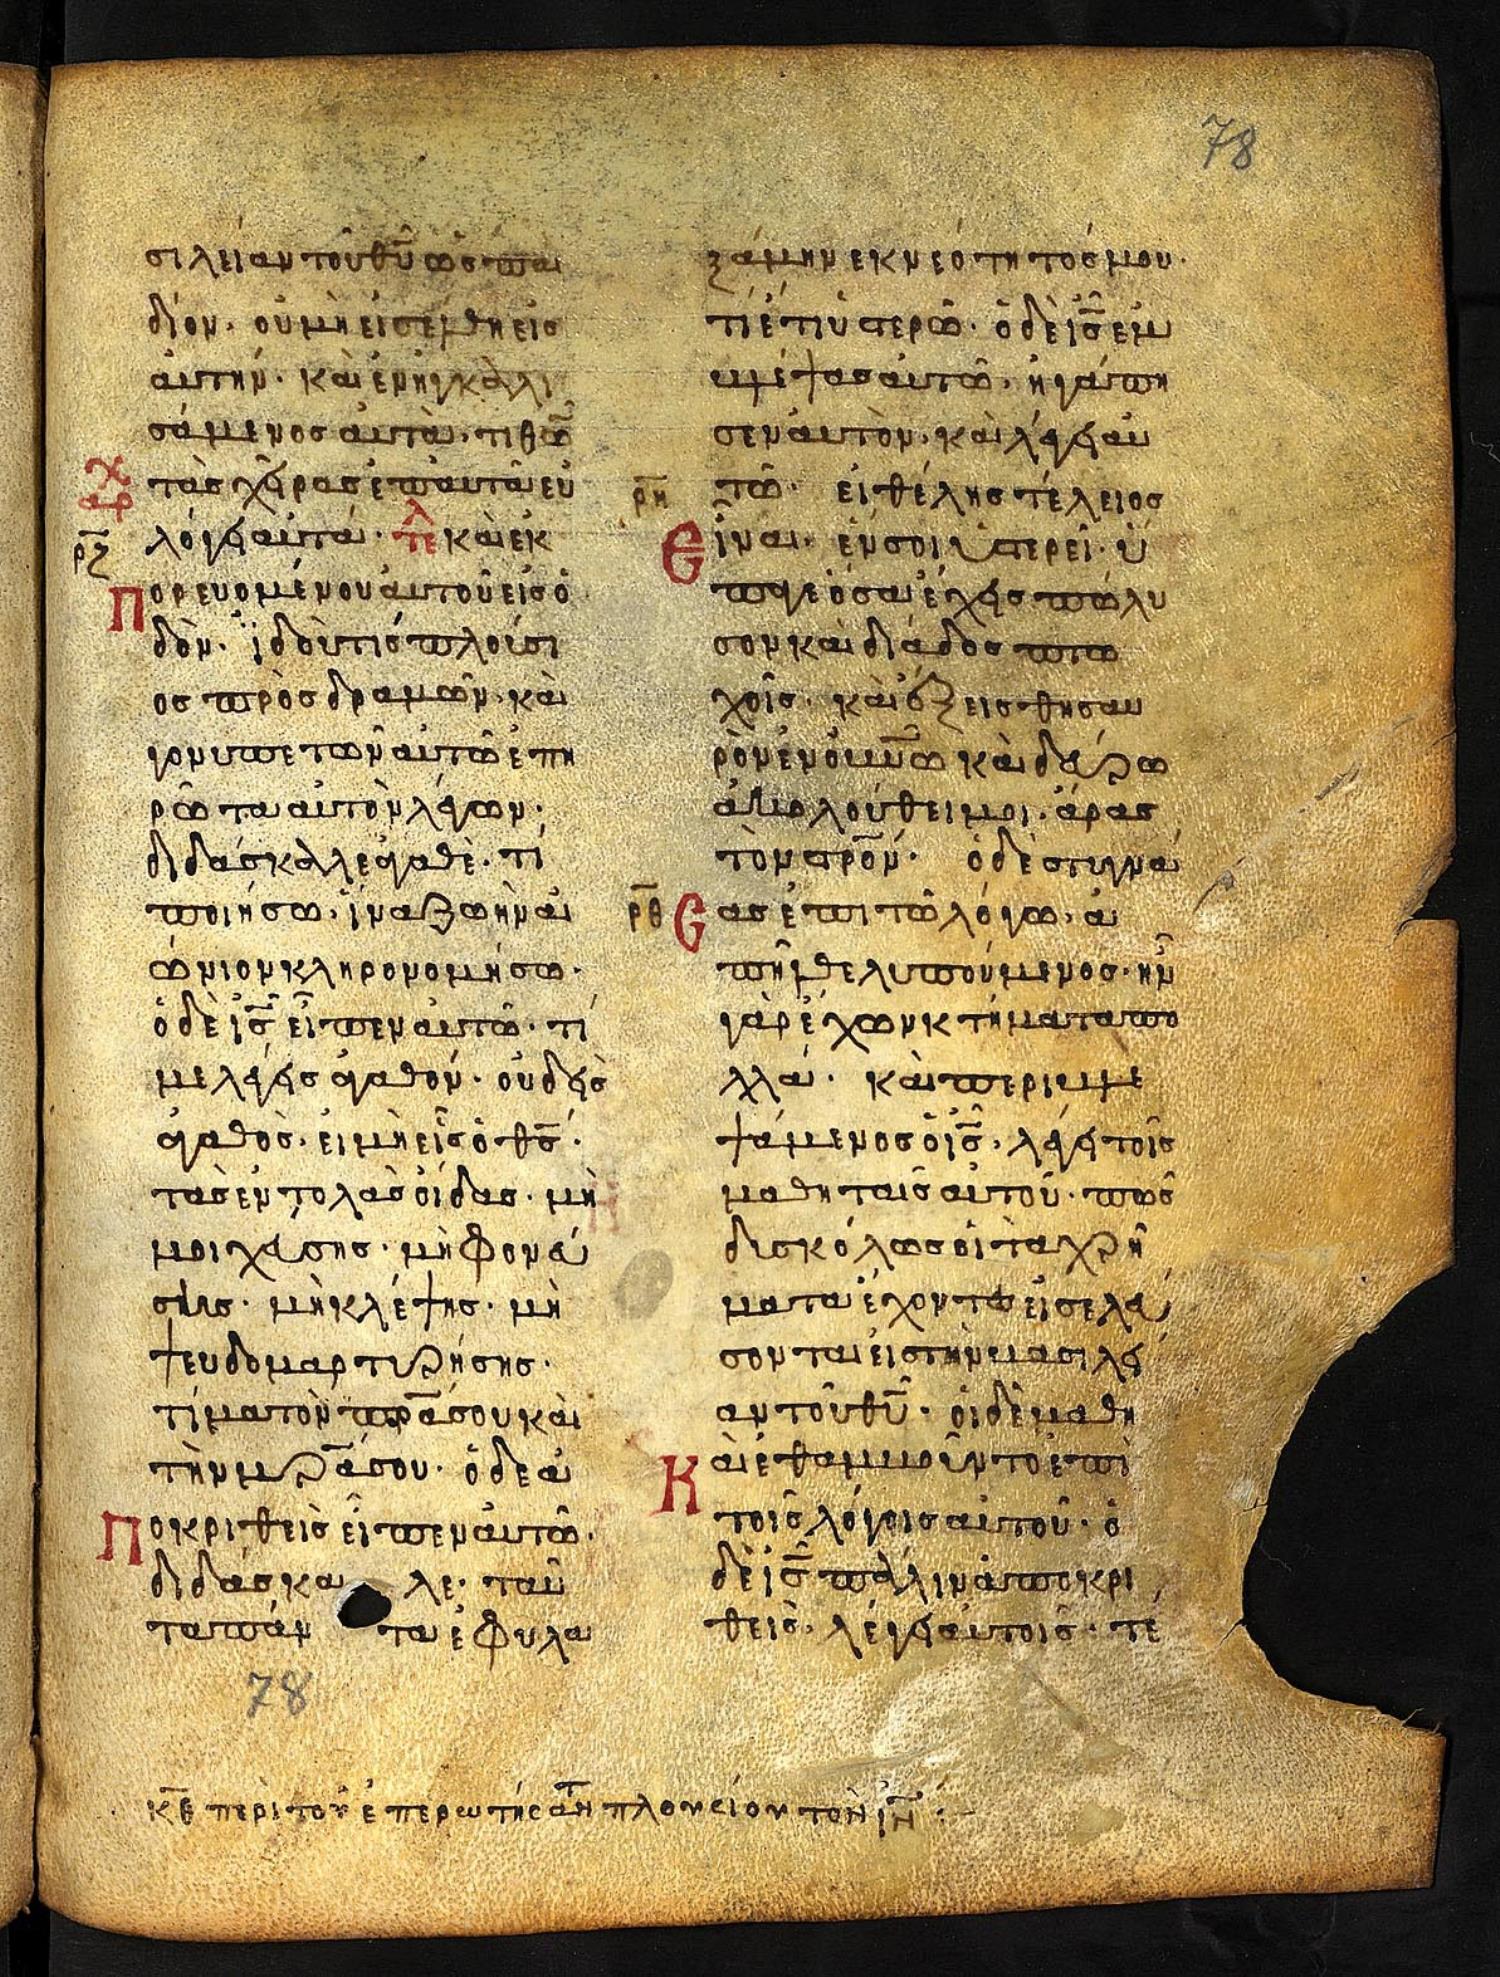 78
σιλείαν τοῦ θ̅υ̅ ὡς παι
δίον· οὐ μὴ εἰσέλθη εἰς
αὐτήν· καὶ ἐναγκαλι
σάμενος αὐτὰ· τιθῶ̅
τὰς χεῖρας ἐπ αὐτὰ εὐ
λόγει αὐτά· τε̅λ καὶ ἐκ
Πορευομένου αὐτοῦ εἰς ὁ
δὸν· ἰδοὺ τίς πλούσι
ος προσδραμὼν· καὶ
γονυπετῶν αὐτῶ ἐπη
ρῶτα αὐτὸν λέγων·
διδάσκαλε ἀγαθὲ· τί
ποιήσω· ἵνα ζωὴν αἰ
ώνιον κληρονομήσω·
ὁ δὲ ι̅ς̅ εἶπεν αὐτῶ· τί
με λέγεις ἀγαθόν· οὐδεὶς
ἀγαθὸς· εἰ μὴ εἷς ὁ θ̅ς̅·
τὰς ἐντολὰς οἶδας· μὴ
μοιχεύσης· μὴ φονεύ
σης· μὴ κλέψης· μὴ
ψευδομαρτυρήσης·
τίμα τὸν π̅ρ̅α̅ σου καὶ
τὴν μ̅ρ̅α̅ σου· ὁ δὲ ἀ
Ποκριθεὶς εἶπεν αὐτῶ·
διδάσκαλε· ταῦ
τα πάντα ἐφυλα
χ
αρ
ρ̅ζ̅
ξάμην ἐκ νεότητός μου·
τί ἔτι ὑστερῶ· ὁ δὲ ι̅ς̅ ἐμ
βλέψας αὐτῶ· ἠγάπη
σεν αὐτὸν· καὶ λέγει αὐ
τῶ· εἰ θέλης τέλειος
Εἶναι· ἕν σοι ὑστερεῖ· ὕ
παγε ὅσα ἔχεις πώλη
σον καὶ διάδος πτω
χοῖς· καὶ ἕξεις θησαυ
ρὸν ἐν ο̅υ̅ν̅ω̅ καὶ δεῦρω
ἀκολούθει μοι· ἄρας
τὸν σ̅ρ̅ό̅ν̅· ὁ δὲ στυγνά
Σας ἐπὶ τῶ λόγω· ἀ
πῆλθε λυπούμενος· ἦν
γὰρ ἔχων κτήματα πο
λλά· καὶ περιβλε
ψάμενος ὁ ι̅ς̅· λέγει τοῖς
μαθηταῖς αὐτοῦ· πῶς
δισκόλως οἱ τὰ χρή
ματα ἔχοντες εἰσελεύ
σονται εἰς τὴν βασιλεί
αν τοῦ θ̅υ̅· οἱ δὲ μαθη
Καὶ ἐθαμβοῦντο ἐπὶ
τοῖς λόγοις αὐτοῦ· ὁ
δὲ ι̅ς̅ πάλιν ἀποκρι
θεὶς· λέγει αὐτοῖς· τέ
ρ̅η̅
ρ̅θ̅
78
κ̅θ̅ περὶ τοῦ ἐπερωτήσα̅ν̅ πλουσίου τὸν ι̅ν̅ :